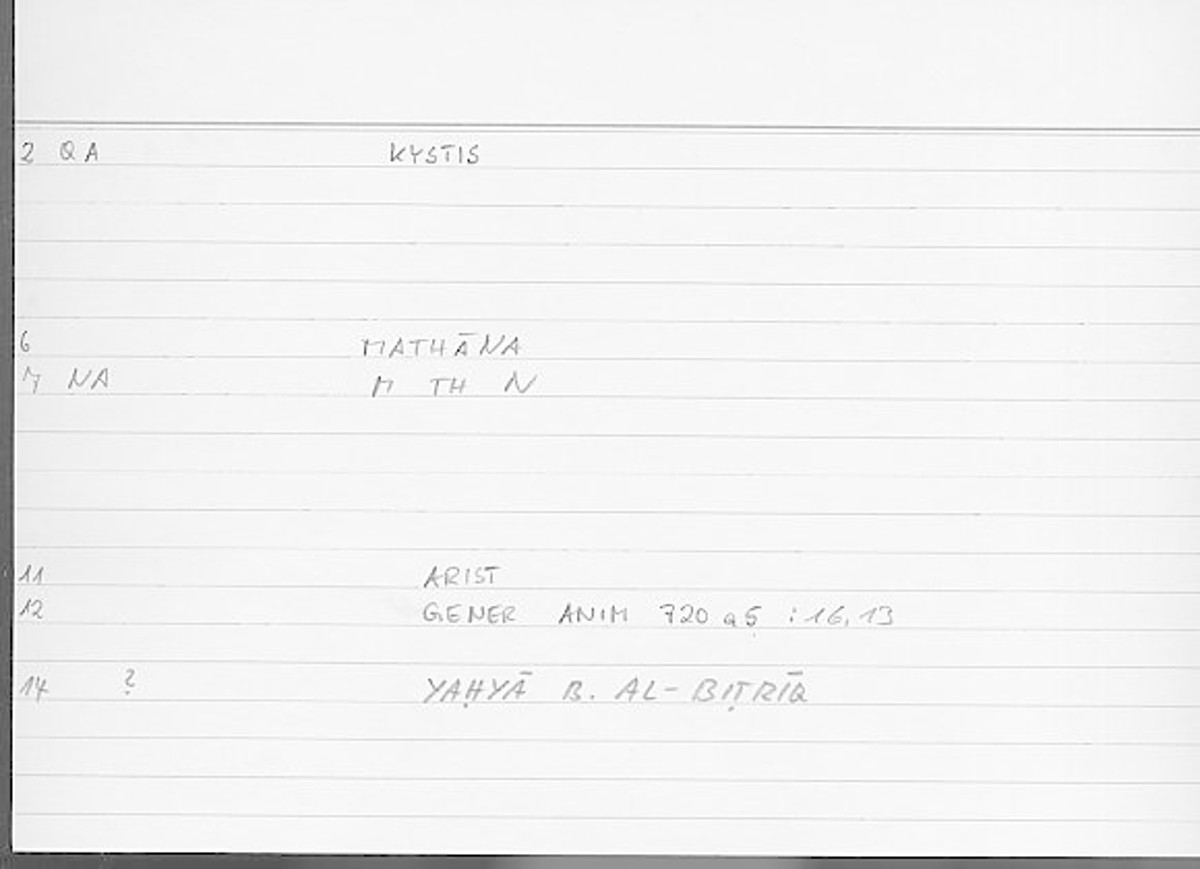 2 QA KYSTIS
6 MATHĀNA
7 NA M TH N
11 ARIST
12 GENER ANIM 720 a5 : 16, 13
14 ? YAḤYĀ B. AL-BIṬRĪQ